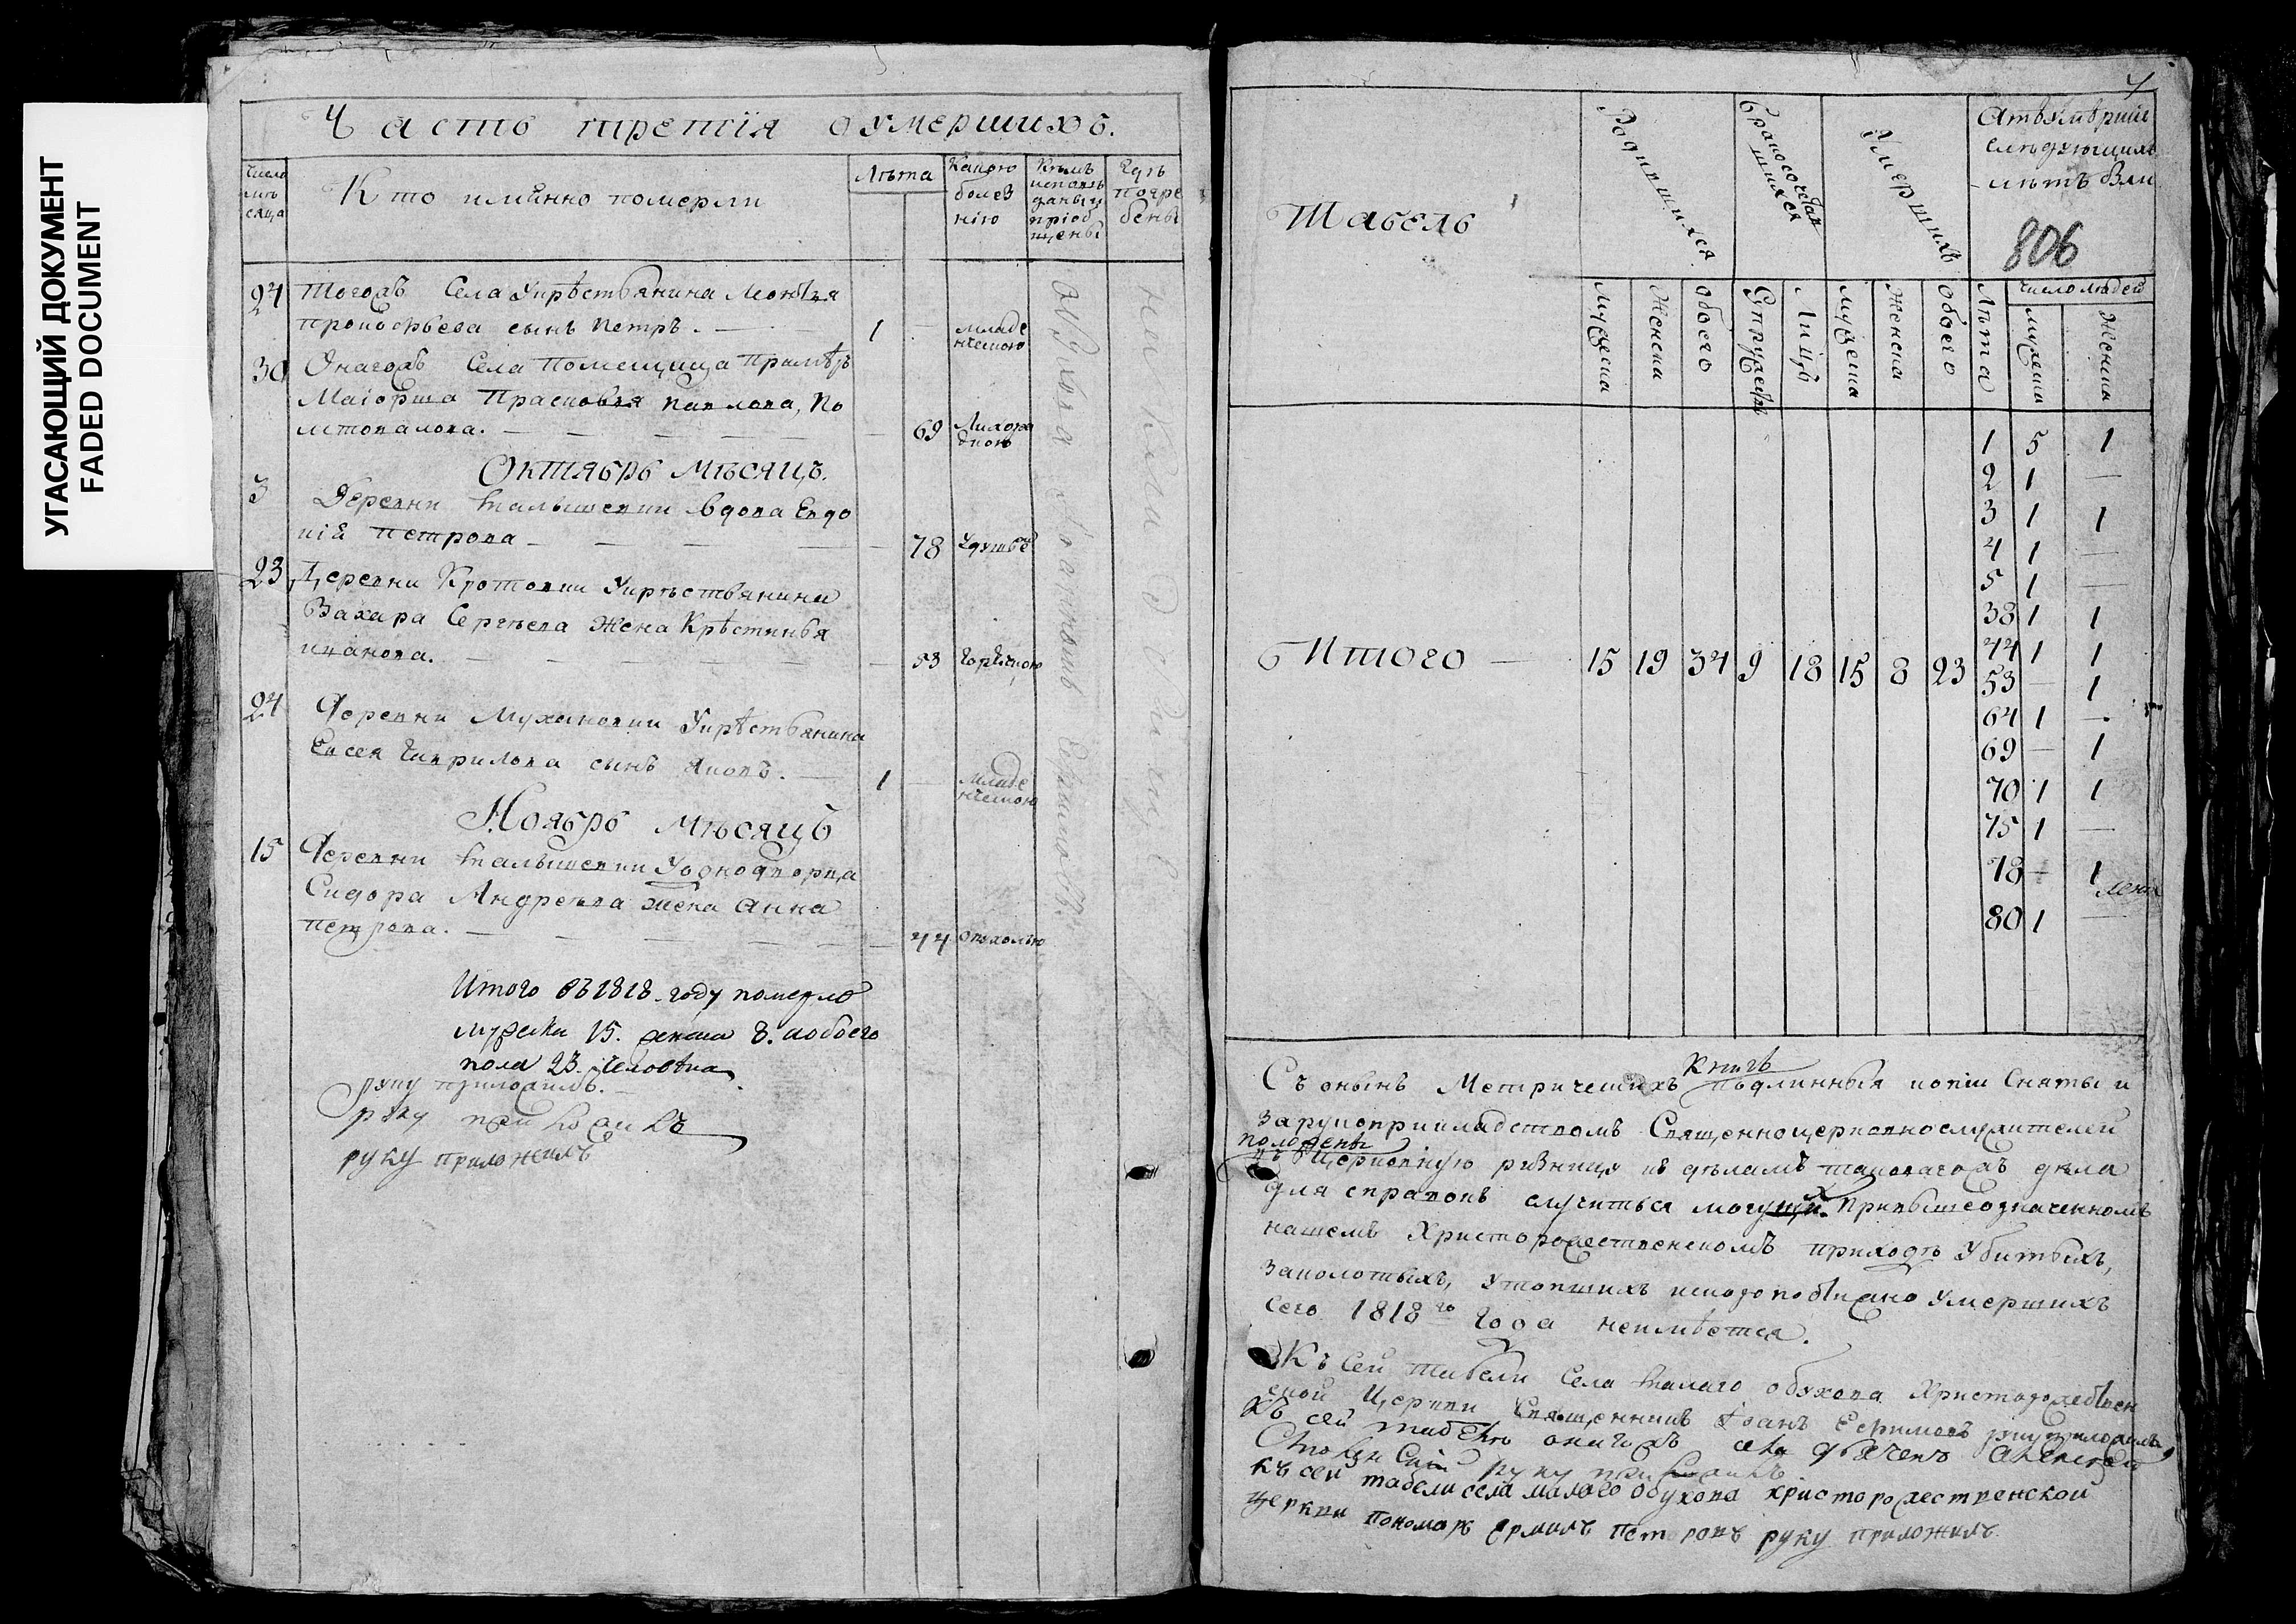 УГАСАЮЩИЙ ДОКУМЕНТ
FADED DOCUMENT
Часть третїя оумершихъ.
Число мѣсяца
Кто имянно померли
Лѣта
Какою болезнію
Кѣмъ исповѣданы и пріобщены
Гдѣ погребены
24 Тогожъ Села Укрѣстьянина Леонтья
Прокофьева сынъ Петръ. 1 младенческою
30 Онагожъ Села Помещица Примѣръ
Маіорша Прасковья Павлова, По
лтовалова. 69 Лихорадкою
Октябрь мѣсяцъ.
3 Деревни Малышевки вдова Евдо
кіѣ Петрова 78 Удушьѣ
23 Деревни Кротовки Укрѣстьянина
Захара Сергѣева жена Крѣстинья
иванова. 53 Горячкою
24 Деревни Мухановки Укрѣстьянина
Евсея Гаврилова сынъ Яковъ. 1 младенческою
Ноябрь мѣсяцъ
15 Деревни Малышевки Уоднодворца
Сидора Андреева жена Анна
Петрова. 44 опухолью
Итого въ 1818. году померло
мужеска 15. женска 8. аобоего
пола 23. человѣка
руку приложилъ.
руку приложилъ
руку приложилъ
Табель
Родившихся
Бракосочетавшихся
Умершихъ
806
число людей
Мужеска
Женска
Обоего
Супружествъ
Лицъ
Мужеска
Женска
Обоего
Лѣта
Мужеска
Женска
1 5 1
2 1 —
3 1 1
4 1 —
5 1 —
38 1 1
44 1 1
53 — 1
64 1 —
69 — 1
70 1 1
75 1 —
78 — 1
80 1 —
Итого 15 19 34 9 18 15 8 23
книгъ
Съ оныхъ Метрическихъ подлинныя копіи Сняты и
Зарукоприкладствомъ Священноцерковнослужителей
положены
въ Церковную ризницу къ дѣламъ таковагожъ дѣла
для справокъ случиться могущих. Привышеозначенномъ
нашемъ Христорожественскомъ приходѣ Убитыхъ,
Заколотыхъ, утопшихъ умершихъ
сего 1818го года неимѣется.
Къ Сей табели Села малаго обухова Христорожествен
ской Церкви Священникъ Іоанъ Ефимовъ руку приложилъ,
Къ сей табели онагожъ села дьячекъ Алексей
руку приложилъ
Къ сей табели села малаго обухова христорожественской
церкви пономарь Ермилъ Петровъ руку приложилъ.